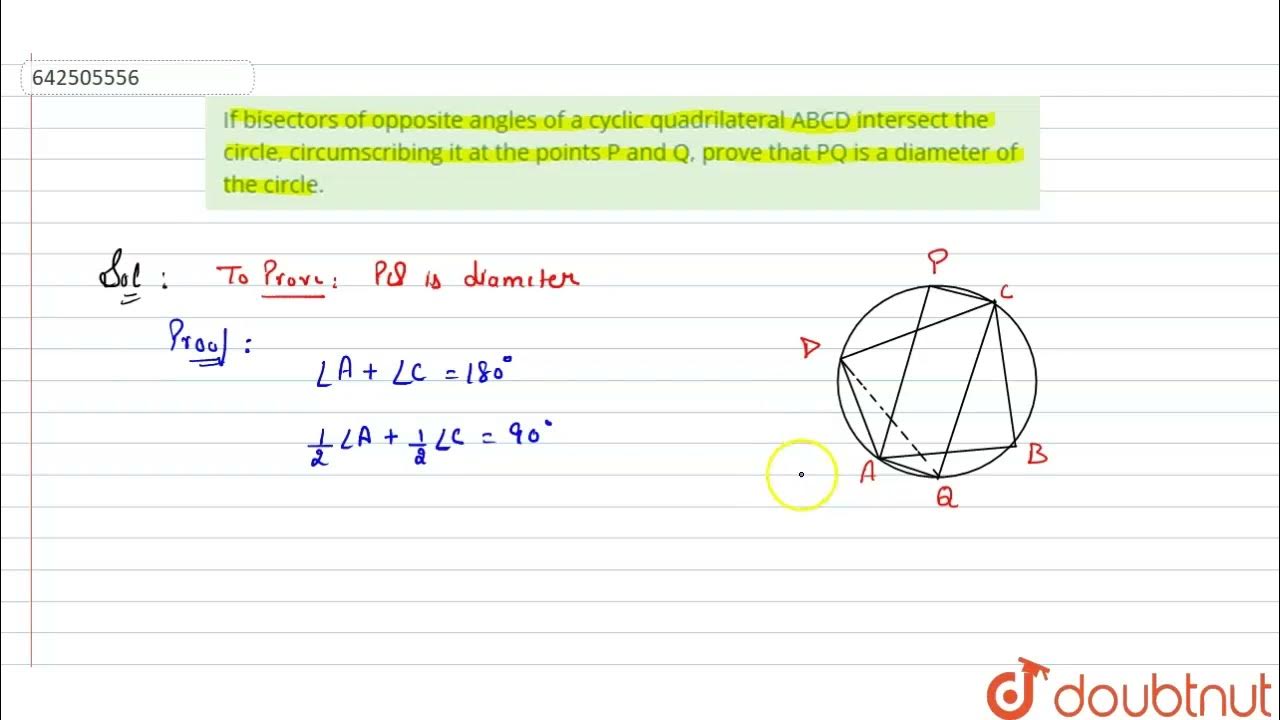 642505556
If bisectors of opposite angles of a cyclic quadrilateral ABCD intersect the
circle, circumscribing it at the points P and Q, prove that PQ is a diameter of
the circle.
Sol : To Prove: PQ is diameter
Proof :
∠A + ∠C = 180°
1/2 ∠A + 1/2 ∠C = 90°
P
C
D
B
A
Q
doubtnut